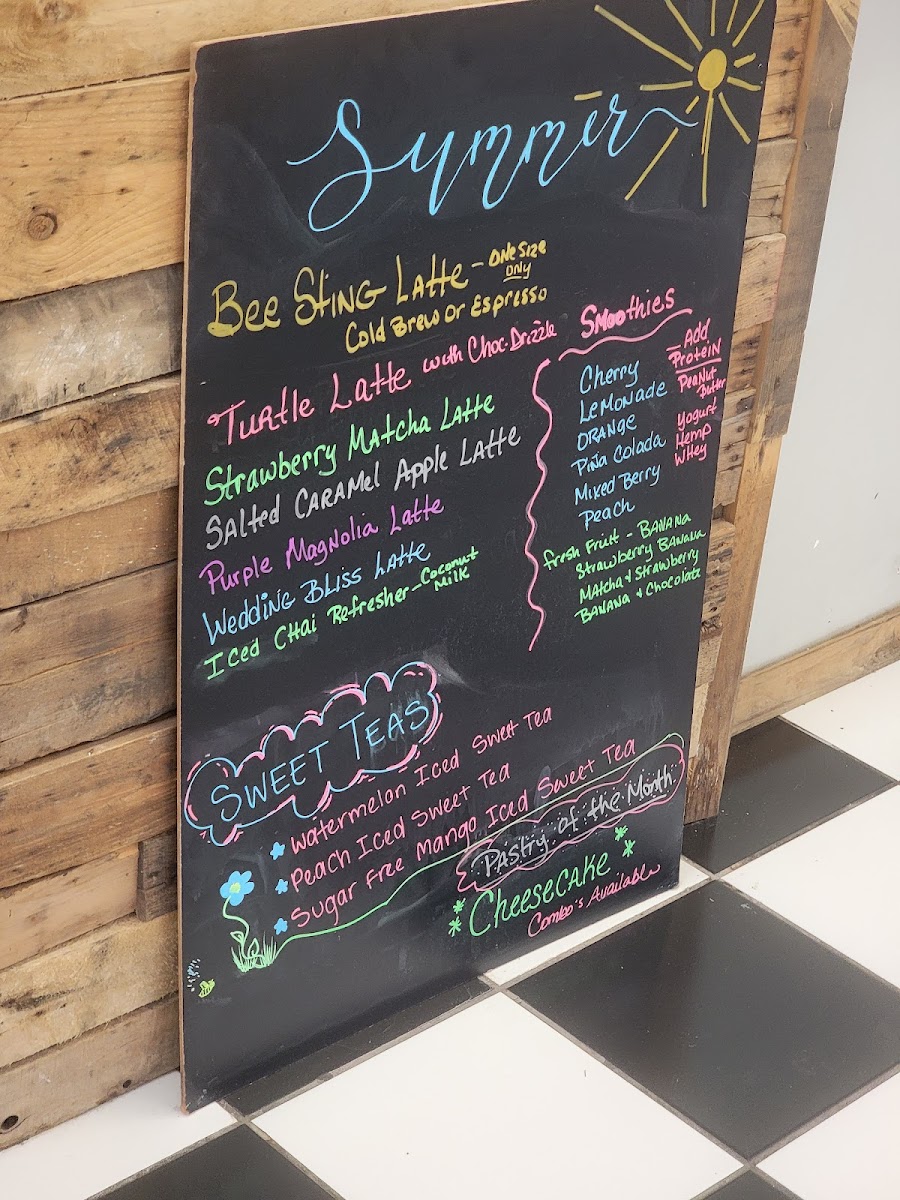 Summer
Bee Sting Latte - one size
only
Cold Brew or Espresso
Turtle Latte with Choc. Drizzle
Strawberry Matcha Latte
Salted Caramel Apple Latte
Purple Magnolia Latte
Wedding Bliss Latte
Iced Chai Refresher - Coconut
Milk
Smoothies
Cherry
Lemonade
Orange
Piña Colada
Mixed Berry
Peach
Fresh Fruit - Banana
Strawberry Banana
Matcha & Strawberry
Banana & Chocolate
Add
Protein
Peanut
Butter
Yogurt
Hemp
Whey
Sweet Teas
Watermelon Iced Sweet Tea
Peach Iced Sweet Tea
Sugar Free Mango Iced Sweet Tea
Pastry of the Month
Cheesecake
Combo's Available